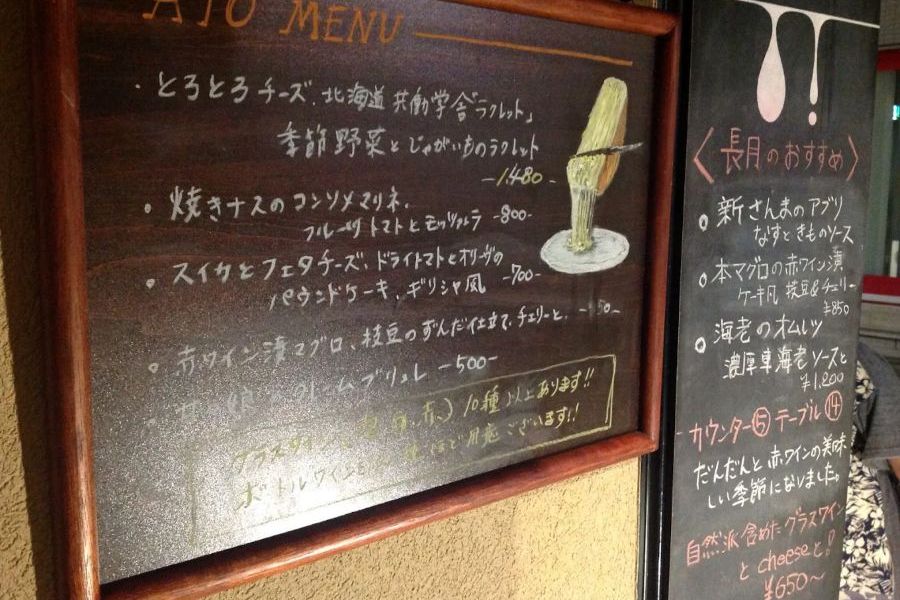 AJO MENU
・とろとろチーズ、北海道共働学舎「ラクレット」
季節野菜とじゃがいものラクレット
-1,480-
焼きナスのコンソメマリネ、
フルーツトマトとモッツァレラ -800-
スイカとフェタチーズ、ドライトマトとオリーヴの
パウンドケーキ、ギリシャ風 -700-
赤ワイン漬マグロ、枝豆のずんだ仕立て、チェリーと
ブリュレ -500-
10種以上あります!!
ご用意ございます!!
〈長月のおすすめ〉
新さんまのアブリ
なすときものソース
本マグロの赤ワイン漬
ケーキ風 枝豆&チェリー
¥850
海老のオムレツ
濃厚車海老ソースと
¥1,200
カウンター⑮ テーブル⑭
だんだんと赤ワインの美味
しい季節になりました。
自然派含めたグラスワイン
と cheeseと!
¥650～